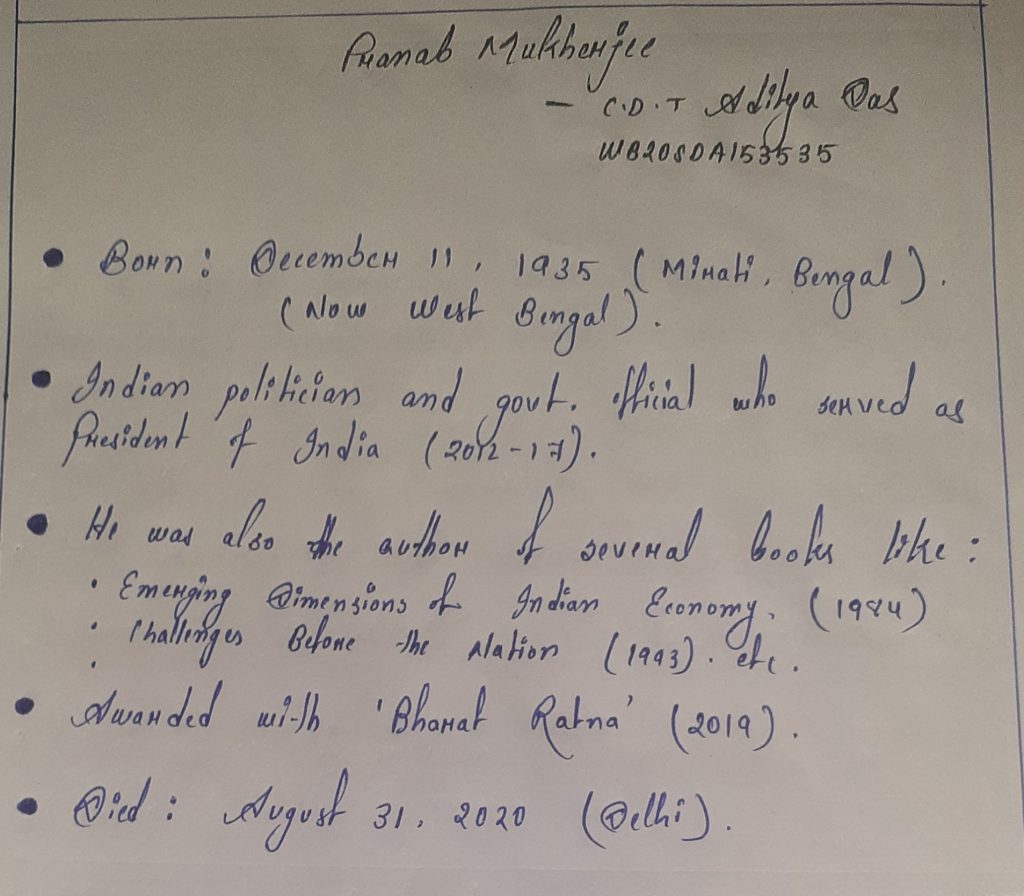 Pranab Mukherjee
- C.D.T Aditya Das
WB20SDA153535
• Born : December 11, 1935 (Mirati, Bengal).
(Now West Bengal).
• Indian politician and govt. official who served as
President of India (2012-17).
• He was also the author of several books like :
• Emerging Dimensions of Indian Economy. (1984)
• Challenges Before the Nation (1993). etc.
•
• Awarded with 'Bharat Ratna' (2019).
• Died : August 31, 2020 (Delhi).